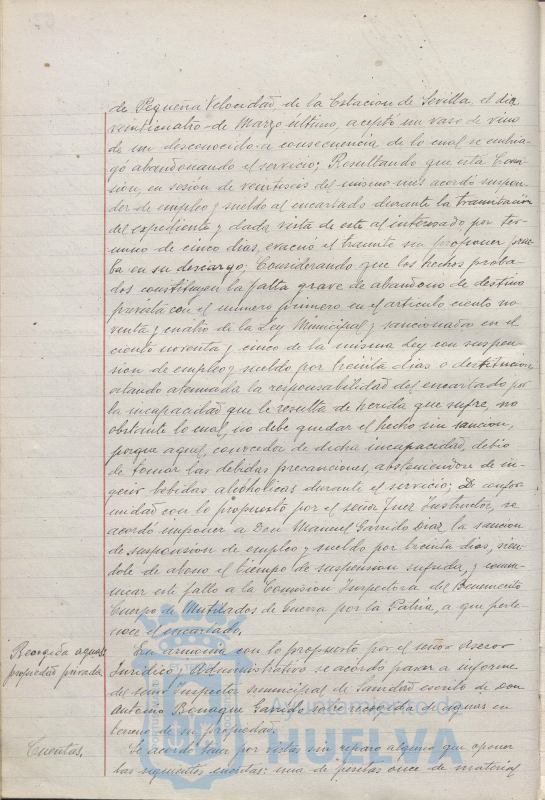 de Pequeña Velocidad, de la Estacion de Sevilla, el dia
veinticuatro de Marzo último, aceptó un vaso de vino
de un desconocido a consecuencia de lo cual se embria-
gó abandonando el servicio; Resultando que esta Comi-
sion, en sesion de veintiseis del mismo mes acordó suspen-
der de empleo y sueldo al encartado durante la tramitación
del expediente y dada vista de este al interesado por ter-
mino de cinco dias, evacuó el tramite sin proponer prue-
ba en su descargo; Considerando que los hechos proba-
dos constituyen la falta grave de abandono de destino
prevista con el numero primero en el articulo ciento no-
venta y cuatro de la Ley Municipal y sancionada en el
ciento noventa y cinco de la misma Ley con suspen-
sion de empleo y sueldo por treinta dias o destitucion
estando atenuada la responsabilidad del encartado por
la incapacidad que le resulta de herida que sufre, no
obstante lo cual, no debe quedar el hecho sin sancion,
porque aquel, conocedor de dicha incapacidad, debio
de tomar las debidas precauciones, absteniendose de in-
gerir bebidas alcohólicas durante el servicio; De confor-
midad con lo propuesto por el señor Juez Instructor, se
acordó imponer a Don Manuel Garrido Diaz la sancion
de suspension de empleo y sueldo por treinta dias, sien-
dole de abono el tiempo de suspension sufrida, y comu-
nicar este fallo a la Comision Inspectora del Benemerito
Cuerpo de Mutilados de Guerra por la Patria, a que perte-
nece el encartado.
Recogida aguas
propiedad privada
En armonia con lo propuesto por el señor Asesor
Juridico y Administrativo se acordó pasar a informe
del señor Inspector municipal de Sanidad escrito de Don
Antonio Garrido sobre recogida de aguas en
terreno de su propiedad.
Cuentas.
Se acordó por vistas sin reparo alguno que oponer
las siguientes cuentas: una de pesetas once de material
Ayuntamiento de
HUELVA